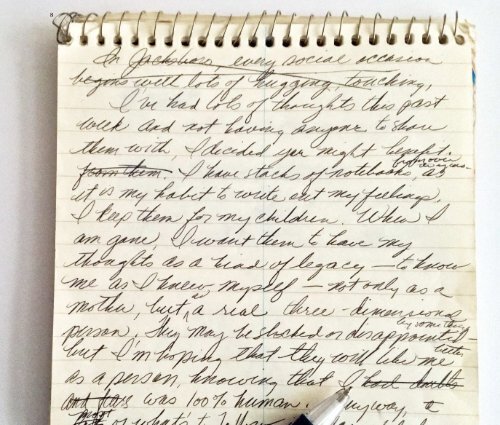 In Jacksbase, every social occasion
begins with lots of hugging, touching,
I've had lots of thoughts this past
week and not having anyone to share
them with, I decided you might benefit
from them. I have stacks of notebooks, as
it is my habit to write out my feelings.
I keep them for my children. When I
am gone, I want them to have my
thoughts as a kind of legacy — to know
me as I knew myself — not only as a
mother, but a real three-dimensional
person. They may be shocked or disappointed
but I'm hoping that they will like me
as a person, knowing that I had doubts
and fears was 100% human. Anyway,
or what's